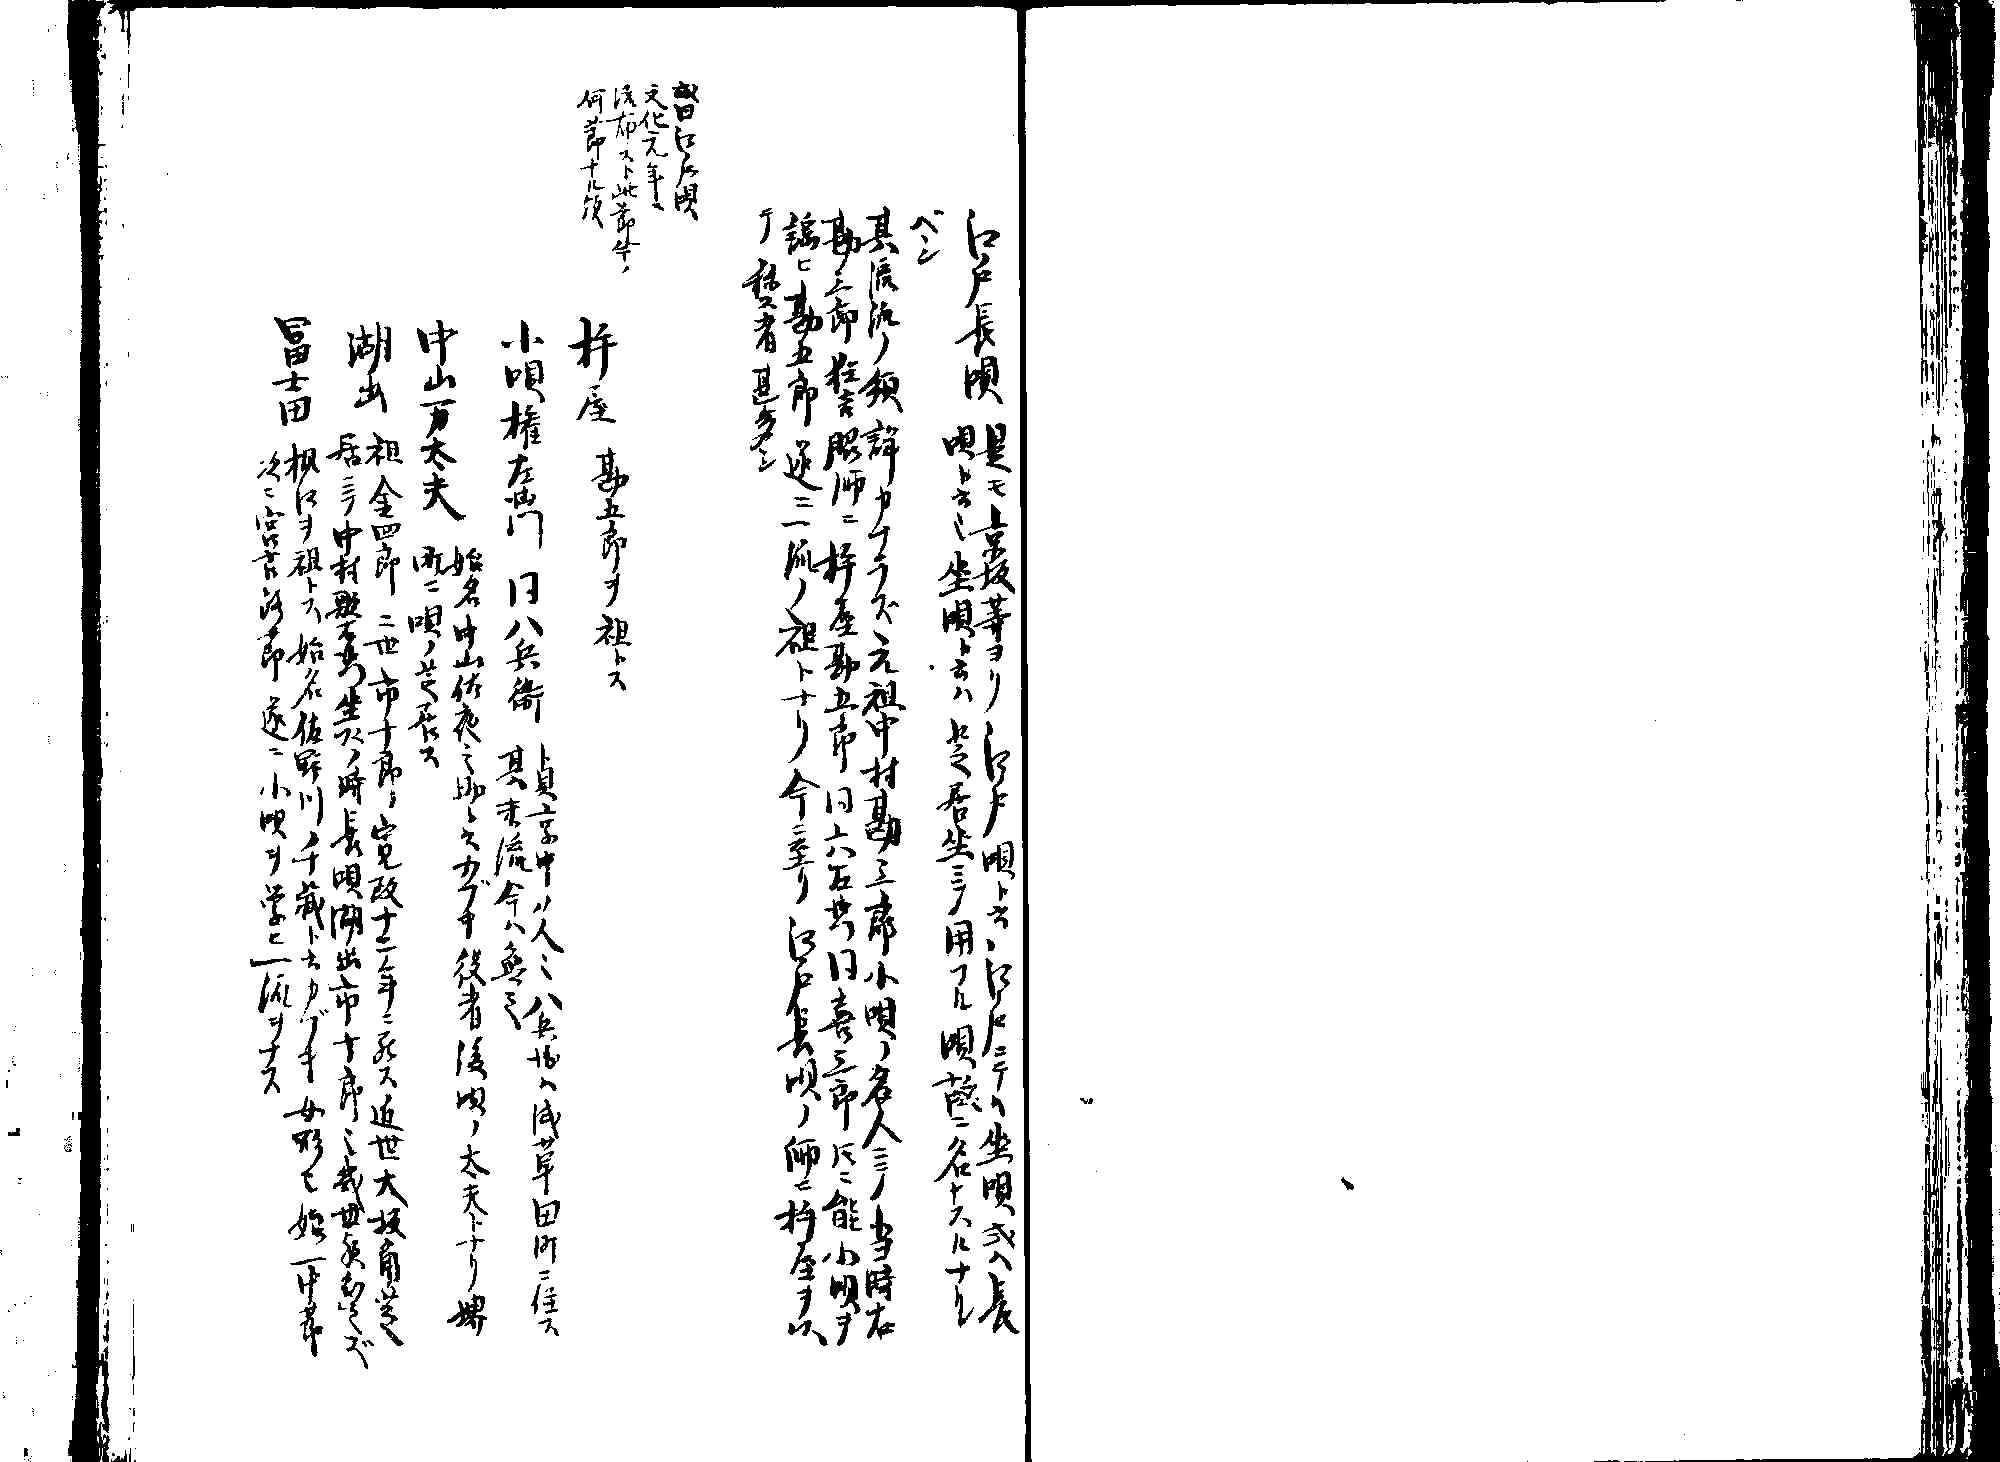 江戸長唄
是モ京坂等ヨリ江戸唄ト云、江戸ニテハ坐唄或ハ長
唄ト云也坐唄ト云ハ芝居坐ニテ用フル唄故ニ名トスルナル
ベシ
其流派ノ類詳カナラズ元祖中村勘三郎小唄ノ名人ニテ当時右
勘三郎狂言脇師ニ杵屋勘五郎同六右共同喜三郎トモニ能小唄ヲ
謡ヒ勘五郎遂ニ一流ノ祖トナリ今ニ至リ江戸長唄ノ師ニ杵屋ヲ以
テ称ス者甚多シ
或曰江戸唄
文化元年ニ
流布スト此節等ノ
何節ナル歟
杵屋 勘五郎ヲ祖トス
小唄権左衛門 同八兵衛
貞享中ノ人也八兵衛ハ浅草田町ニ住ス
其末流今ハ無之
中山万太夫
始名中山佐夜之助ト云カブキ役者後唄ノ太夫トナリ堺
町ニ唄ノ芝居ス
湖出
祖金四郎二世市十郎ハ寛政十二年ニ死ス近世大坂角芝
居ニテ中村歌右衛門坐ノ時長唄湖出市十郎也幾世孫カ知ラズ
冨士田
楓江ヲ祖トス始名佐野川千蔵ト云カブキ女形也始一中節
次ニ宮古路節遂ニ小唄ヲ学ヒ一流ヲナス